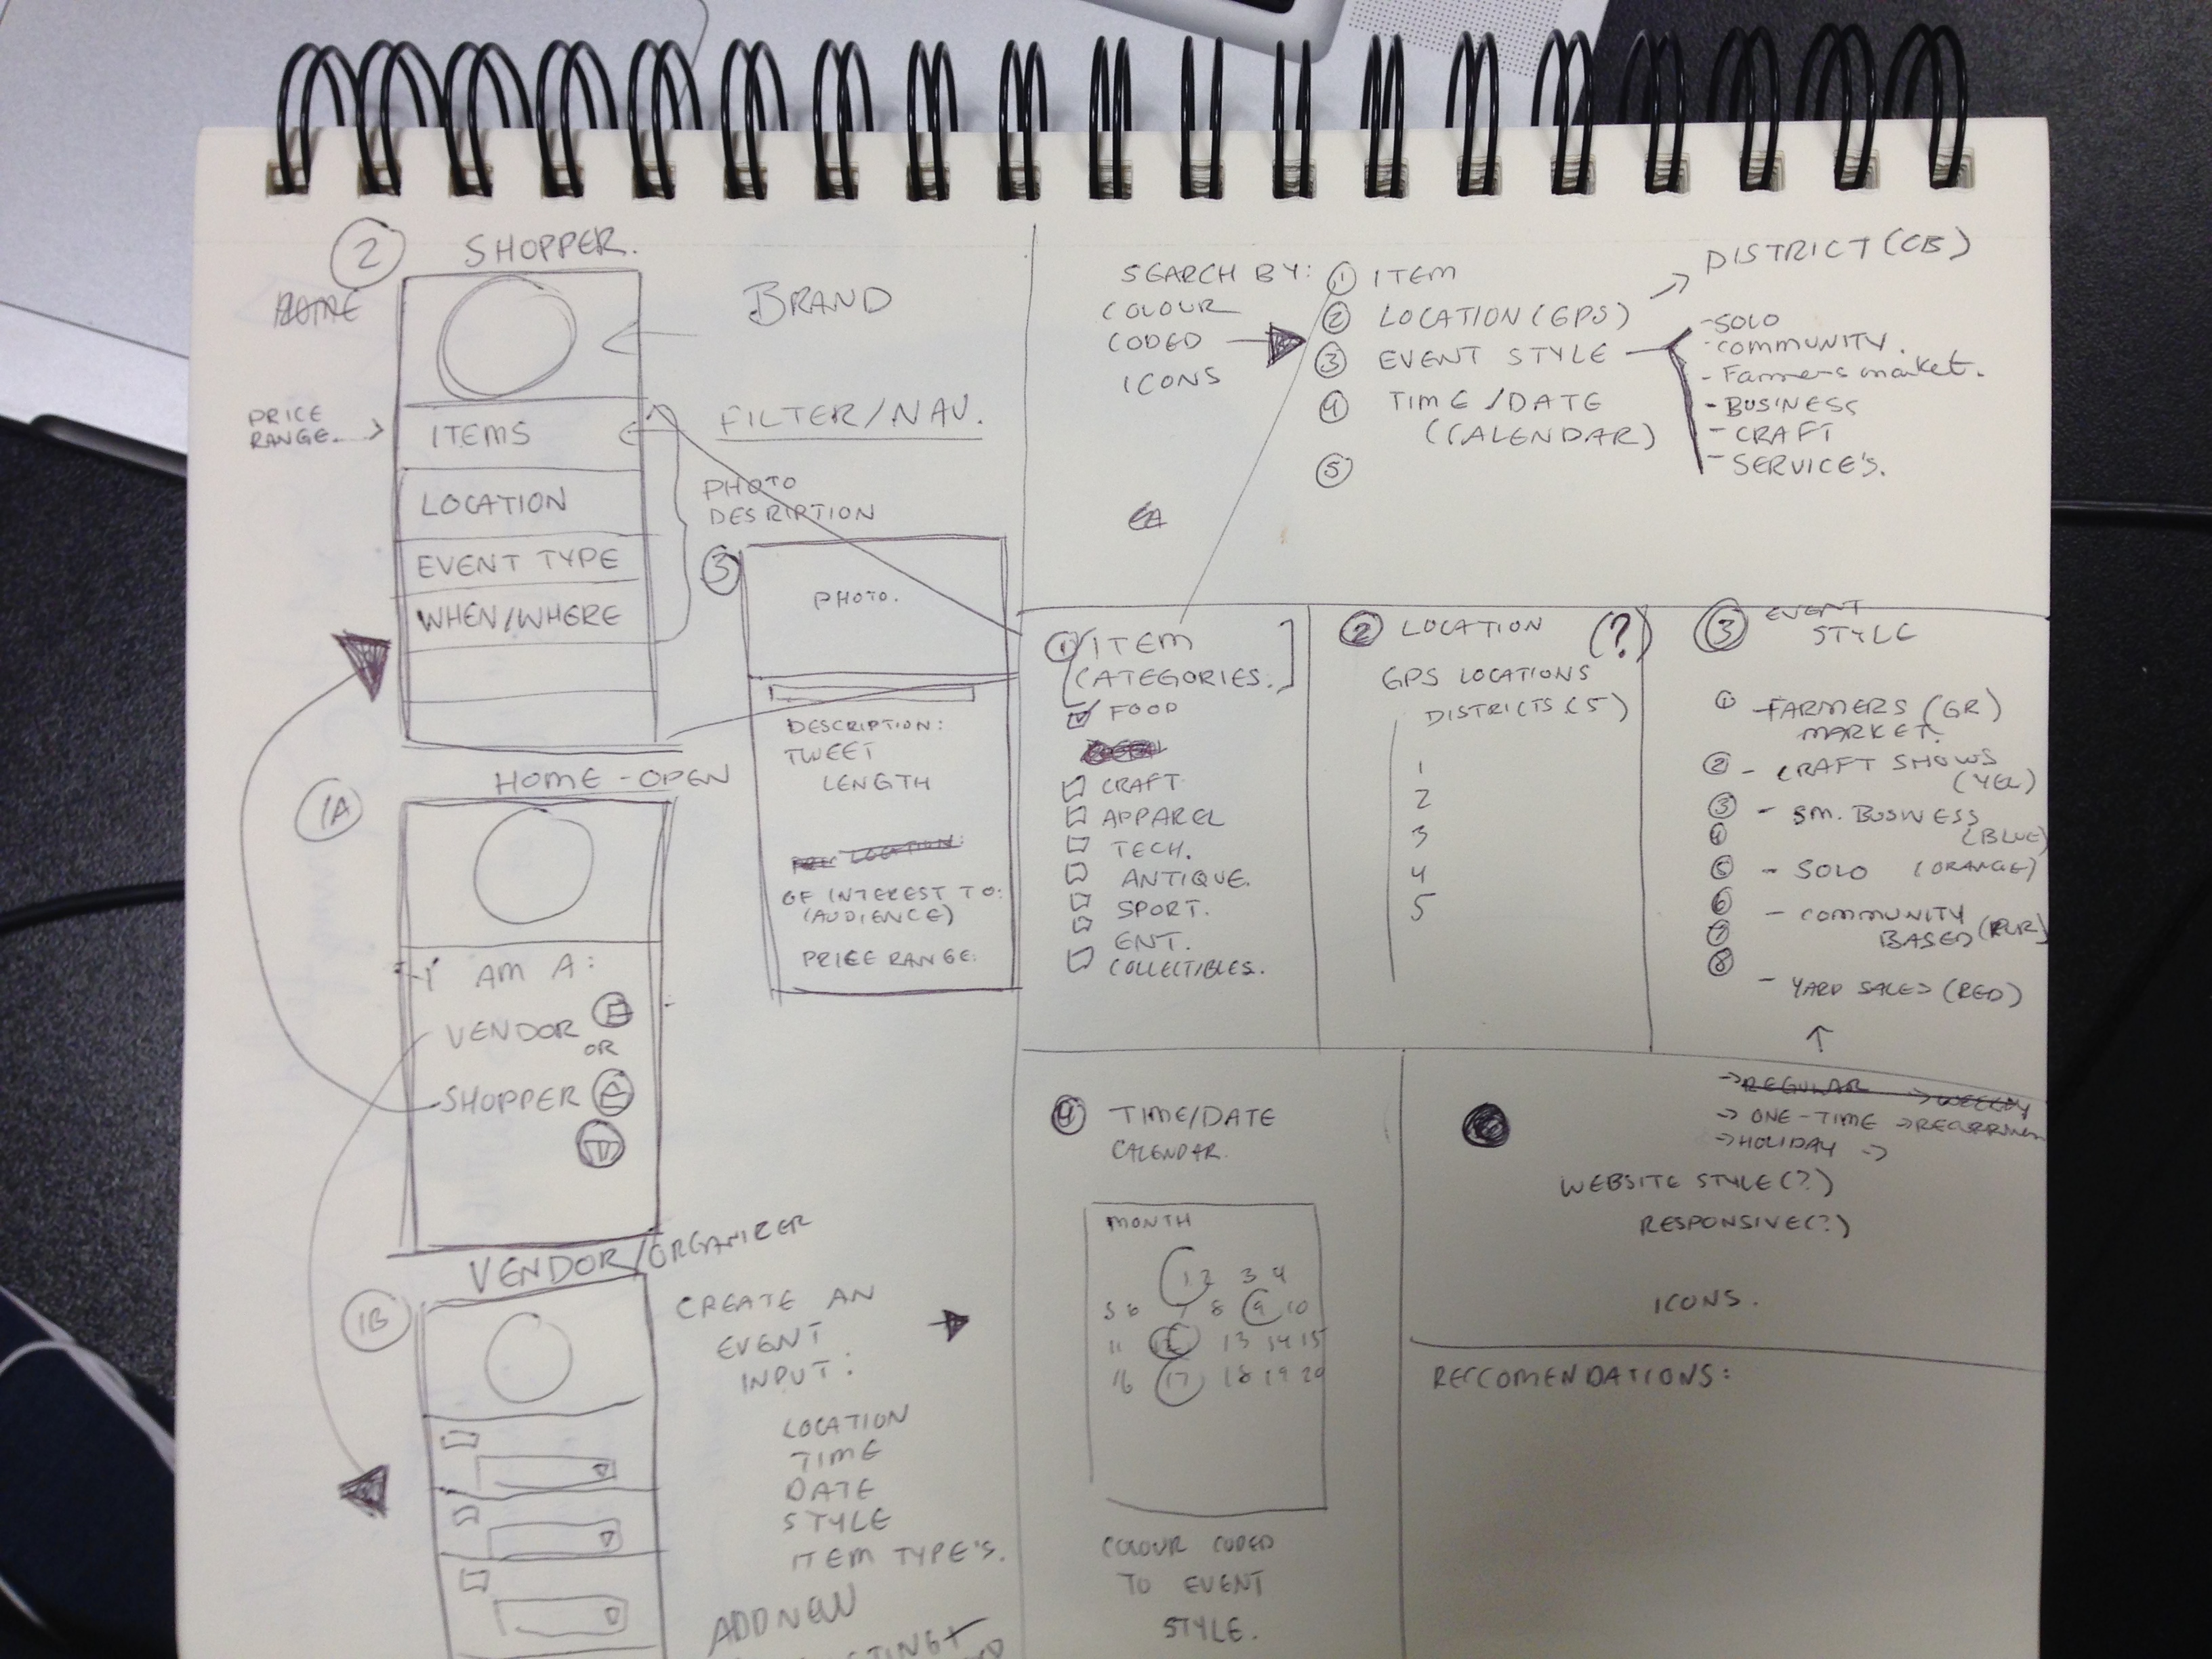 2 SHOPPER.
HOME
BRAND
PRICE
RANGE.
ITEMS
FILTER/NAV.
LOCATION
EVENT TYPE
WHEN/WHERE
PHOTO
DESRIPTION
3
PHOTO.
DESCRIPTION:
TWEET
LENGTH
LOCATION:
OF INTEREST TO:
(AUDIENCE)
PRICE RANGE:
HOME-OPEN
1A
I AM A:
VENDOR
OR
SHOPPER
VENDOR/ORGANIZER
1B
CREATE AN
EVENT
INPUT:
LOCATION
TIME
DATE
STYLE
ITEM TYPE'S.
ADD NEW
SEARCH BY:
COLOUR
CODED
ICONS
1 ITEM
2 LOCATION (GPS)
3 EVENT STYLE
4 TIME/DATE
(CALENDAR)
5
DISTRICT (CB)
-SOLO
-COMMUNITY.
-Farmers market.
-BUSINESS
-CRAFT
-SERVICE'S.
1 ITEM
CATEGORIES.
FOOD
CRAFT
APPAREL
TECH.
ANTIQUE.
SPORT.
ENT.
COLLECTIBLES.
2 LOCATION (?)
GPS LOCATIONS
DISTRICTS (5)
1
2
3
4
5
3 EVENT
STYLE
1 -FARMERS (GR)
MARKET.
2 - CRAFT SHOWS
(YEL)
3 - SM. BUSINESS
4 (BLUE)
5 - SOLO (ORANGE)
6 - COMMUNITY
7 BASED (PUR)
8
- YARD SALES (RED)
→REGULAR →WEEKLY
→ ONE-TIME →RECURRING
→HOLIDAY →
4 TIME/DATE
CALENDAR.
MONTH
1 2 3 4
5 6 7 8 9 10
11 12 13 14 15
16 17 18 19 20
COLOUR CODED
TO EVENT
STYLE.
WEBSITE STYLE(?)
RESPONSIVE(?)
ICONS.
RECCOMENDATIONS: